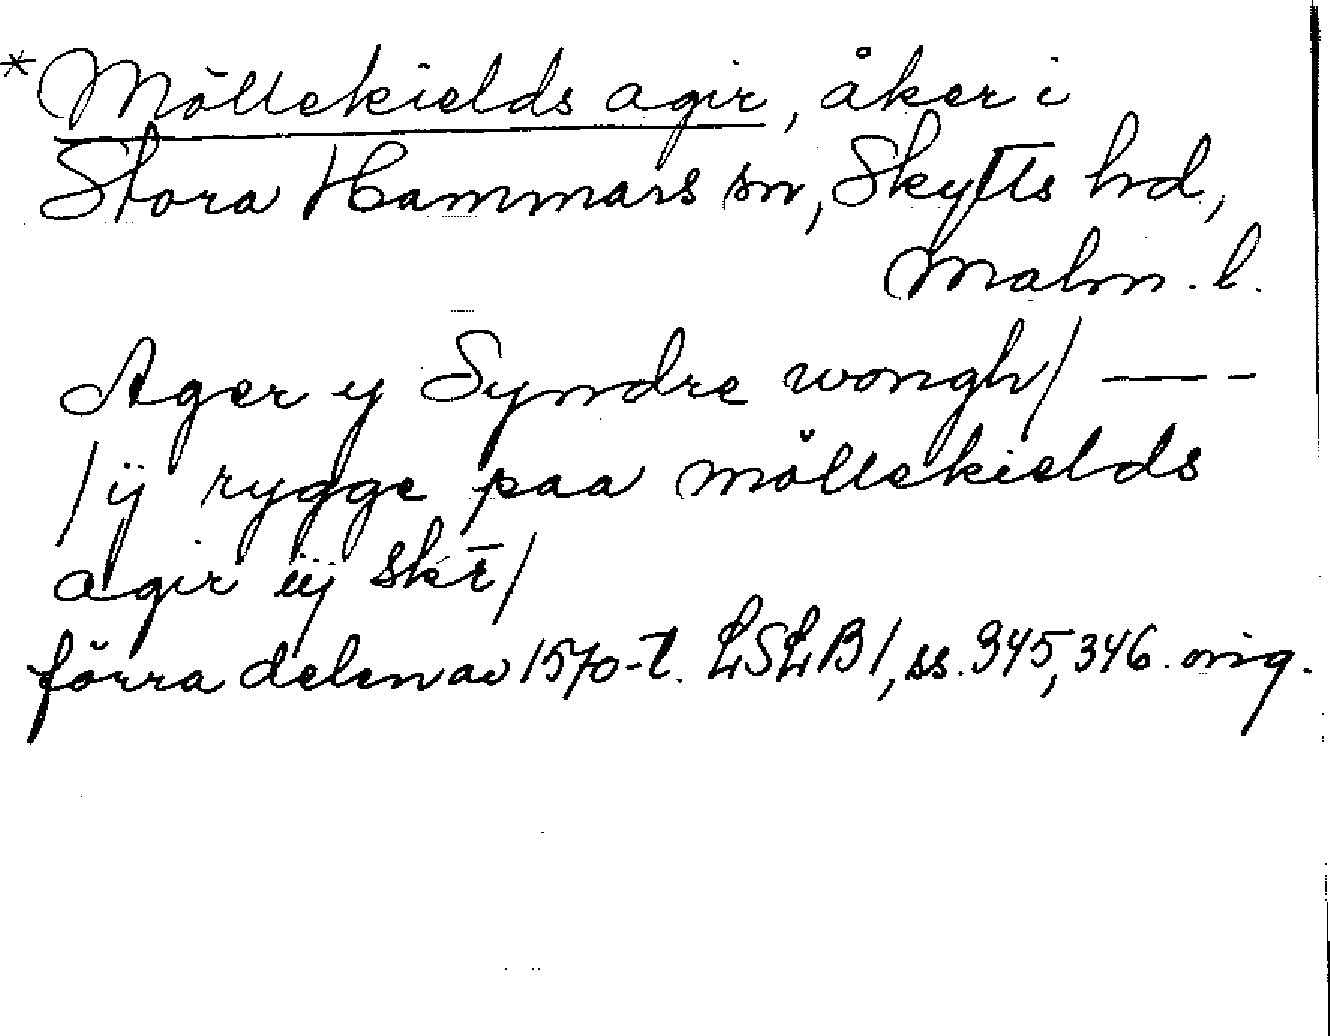 *Möllekields agir, åker i
Stora Hammars sn, Skytts hd,
Malm. l.
Ager y Syndre wongh/ — -
/ij rygge paa möllekields
agir iij skr̄/
förra delen av 1570-t. LSLB1, ss. 345, 346. orig.